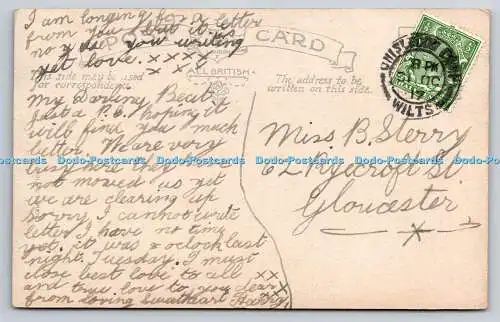 I am longing for a letter
from you but it is
no use you writing
yet love. xxxx
POST CARD
ALL BRITISH
This side may be used
for correspondence.
The address to be
written on this side.
CHISLEDON CAMP
PM
DC
WILTS
My Darling Beat
Just a P.C. hoping it
will find you much
better. We are very
busy here they have
not moved us yet
we are clearing up
Sorry I cannot write
letter I have no time
yet. it was x oclock last
night. Tuesday. I must
close best love to all xx
and true love to you dear x
from loving Sweetheart Harry
Miss B. Sterry
62 Ryecroft St
Gloucester
x
Dodo-Postcards Dodo-Postcards Dodo-Postcards Dodo-Postcards Dodo-Postcards Dodo-Postcards